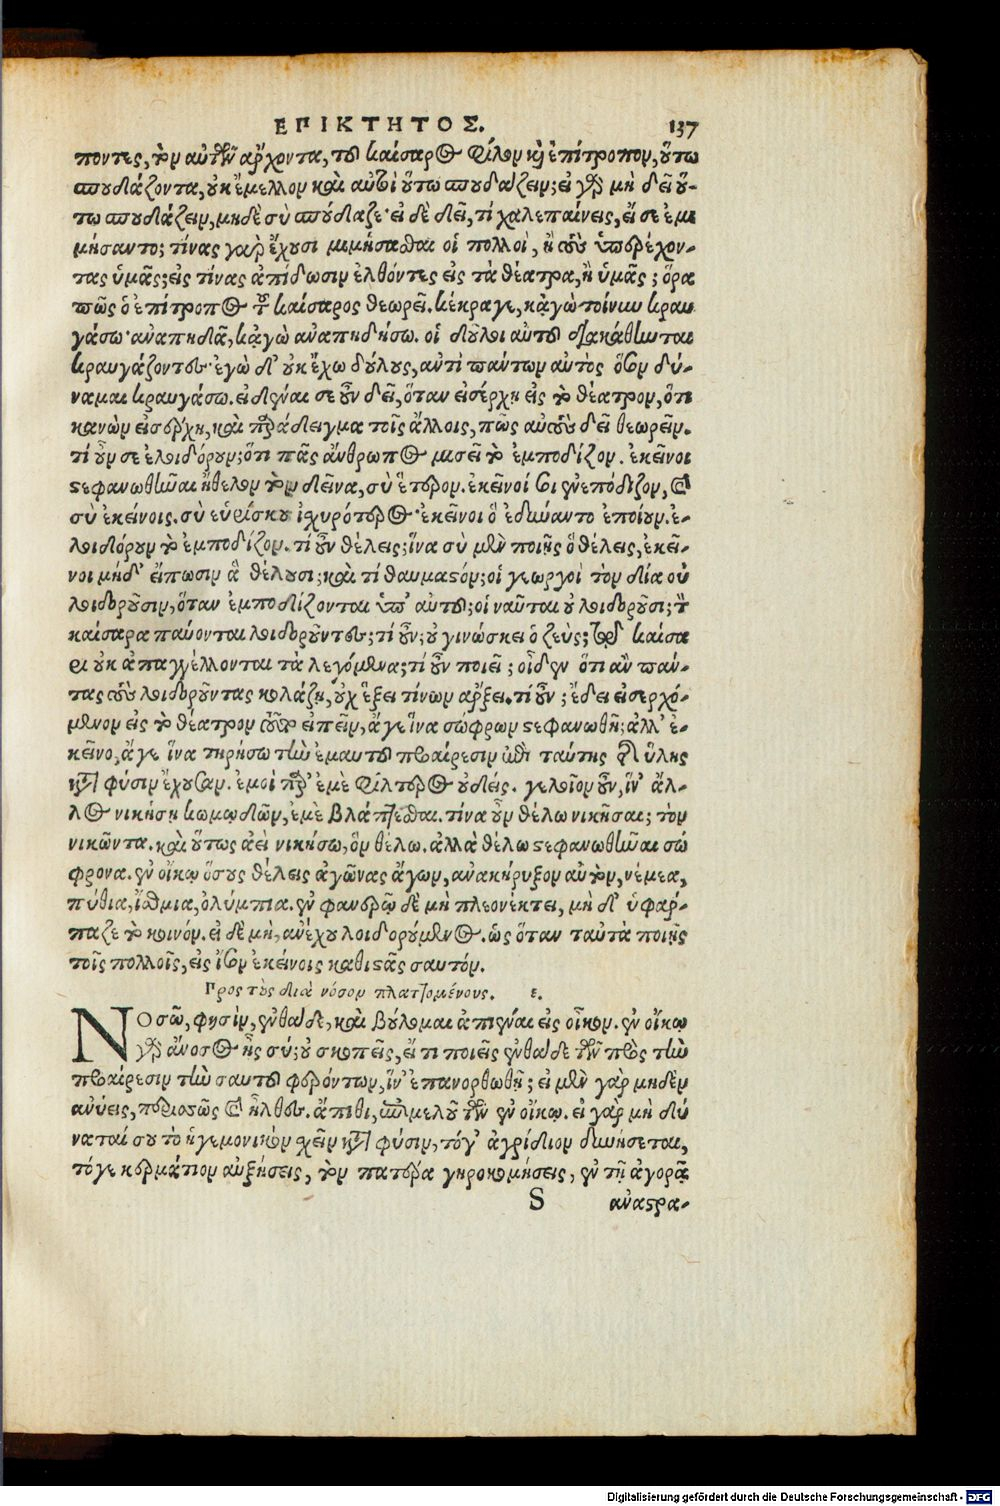 ΕΠΙΚΤΗΤΟΣ. 137
ποντες, τὸν αὐτῶν ἄρχοντα, τοῦ καίσαρος φίλον καὶ ἐπίτροπον, οὕτω
σπουδάζοντα, οὐκ ἔμελλον καὶ αὐτοὶ οὕτω σπουδάζειν; εἰ γὰρ μὴ δεῖ οὕ-
τω σπουδάζειν, μηδὲ σὺ σπούδαζε· εἰ δὲ δεῖ, τί χαλεπαίνεις, εἴ σε ἐμι
μήσαντο; τίνας γὰρ ἔχουσι μιμήσασθαι οἱ πολλοὶ, ἢ τοὺς ὑπερέχον-
τας ὑμᾶς; εἰς τίνας ἀπίδωσιν ἐλθόντες εἰς τὰ θέατρα, ἢ ὑμᾶς; ὅρα
πῶς ὁ ἐπίτροπος τοῦ καίσαρος θεωρεῖ. κέκραγε, κἀγὼ τοίνυν κραυ
γάσω· ἀναπηδᾷ, κἀγὼ ἀναπηδήσω. οἱ δοῦλοι αὐτοῦ διακάθηνται
κραυγάζοντες· ἐγὼ δ' οὐκ ἔχω δούλους, ἀντὶ πάντων αὐτὸς ὅσον δύ-
ναμαι κραυγάσω. εἰδέναι σε οὖν δεῖ, ὅταν εἰσέρχῃ εἰς τὸ θέατρον, ὅτι
κανὼν εἰσέρχῃ, καὶ παράδειγμα τοῖς ἄλλοις, πῶς αὐτοὺς δεῖ θεωρεῖν.
τί οὖν σε ἐλοιδόρουν; ὅτι πᾶς ἄνθρωπος μισεῖ τὸ ἐμποδίζον. ἐκεῖνοι
στεφανωθῆναι ἤθελον τὸν δεῖνα, σὺ ἕτερον. ἐκεῖνοί σοι ἐνεπόδιζον, καὶ
σὺ ἐκείνοις. σὺ εὑρίσκου ἰχυρότερος· ἐκεῖνοι ὃ ἐδύναντο ἐποίουν. ἐ-
λοιδόρουν τὸ ἐμποδίζον. τί οὖν θέλεις; ἵνα σὺ μὲν ποιῇς ὃ θέλεις, ἐκεῖ-
νοι μηδ' εἴπωσιν ἃ θέλουσι; καὶ τί θαυμαστόν; οἱ γεωργοὶ τὸν δία οὐ
λοιδοροῦσιν, ὅταν ἐμποδίζονται ὑπ' αὐτοῦ; οἱ ναῦται οὐ λοιδοροῦσι; τὸν
καίσαρα παύονται λοιδοροῦντες; τί οὖν; οὐ γινώσκει ὁ ζεύς; τῷ καίσα
ρι οὐκ ἀπαγγέλλονται τὰ λεγόμενα; τί οὖν ποιεῖ; οἶδεν ὅτι ἂν πάν-
τας τοὺς λοιδοροῦντας κολάζῃ, οὐχ ἕξει τίνων ἄρξει. τί οὖν; ἔδει εἰσερχό-
μενον εἰς τὸ θέατρον τοῦτο εἰπεῖν, ἄγε ἵνα σώφρων στεφανωθῇ; ἀλλ' ἐ-
κεῖνο, ἄγε ἵνα τηρήσω τὴν ἐμαυτοῦ προαίρεσιν ἐπὶ ταύτης τῆς ὕλης
κατὰ φύσιν ἔχουσαν. ἐμοὶ παρ' ἐμὲ φίλτερος οὐδείς. γελοῖον οὖν, ἵν' ἄλ-
λος νικήσῃ κωμῳδῶν, ἐμὲ βλάπτεσθαι. τίνα οὖν θέλω νικῆσαι; τὸν
νικῶντα. καὶ οὕτως ἀεὶ νικήσω, ὃν θέλω. ἀλλὰ θέλω στεφανωθῆναι σώ
φρονα. ἐν οἴκῳ ὅσους θέλεις ἀγῶνας ἄγων, ἀνακήρυξον αὐτὸν, νέμεα,
πύθια, ἴσθμια, ὀλύμπια. ἐν φανερῷ δὲ μὴ πλεονέκτει, μὴ δ' ὑφάρ-
παζε τὸ κοινόν. εἰ δὲ μὴ, ἀνέχου λοιδορούμενος. ὡς ὅταν ταὐτὰ ποιῇς
τοῖς πολλοῖς, εἰς ἴσον ἐκείνοις καθιστᾷς σαυτόν.
Πρὸς τοὺς διὰ νόσον πλαττομένους. ε.
ΝΟσῶ, φησὶν, ἐνθάδε, καὶ βούλομαι ἀπιέναι εἰς οἶκον. ἐν οἴκῳ
γὰρ ἄνοσος ἦς σύ; οὐ σκοπεῖς, εἴ τι ποιεῖς ἐνθάδε τῶν πρὸς τὴν
προαίρεσιν τὴν σαυτοῦ φερόντων, ἵν' ἐπανορθωθῇ; εἰ μὲν γὰρ μηδὲν
ἀνύεις, περισσῶς καὶ ἦλθες. ἄπιθι, ἐπιμελοῦ τῶν ἐν οἴκῳ. εἰ γὰρ μὴ δύ
ναταί σου τὸ ἡγεμονικὸν σχεῖν κατὰ φύσιν, τόγ' ἀγρίδιον δυνήσεται,
τόγε κερμάτιον αὐξήσεις, τὸν πατέρα γηροκομήσεις, ἐν τῇ ἀγορᾷ
S ἀναστρα-
Digitalisierung gefördert durch die Deutsche Forschungsgemeinschaft - DFG